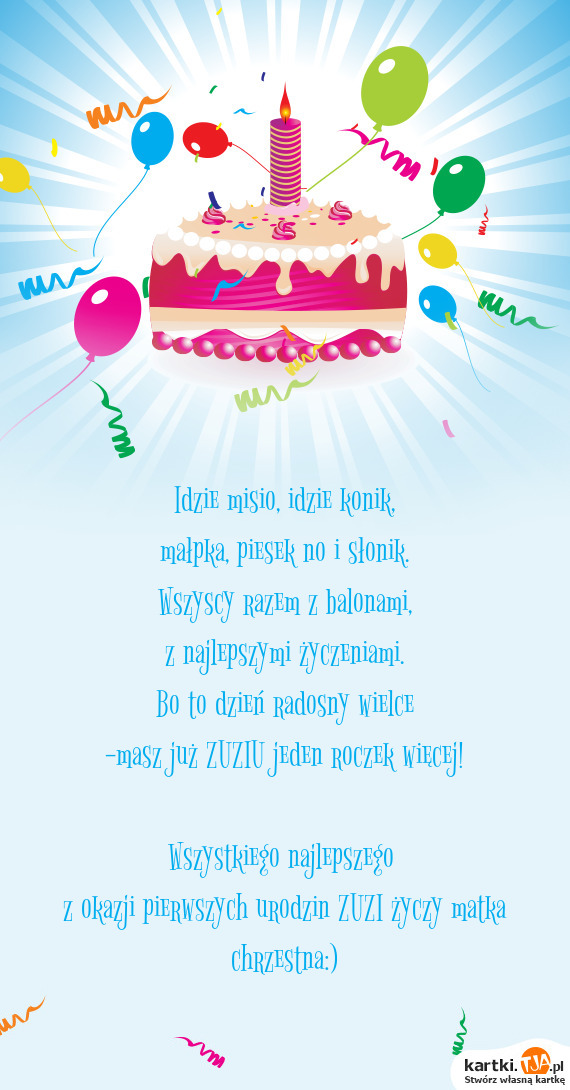 Idzie misio, idzie konik,
małpka, piesek no i słonik.
Wszyscy razem z balonami,
z najlepszymi życzeniami.
Bo to dzień radosny wielce
-masz już ZUZIU jeden roczek więcej!
Wszystkiego najlepszego
z okazji pierwszych urodzin ZUZI życzy matka
chrzestna:)
kartki.TJA.pl
Stwórz własną kartkę